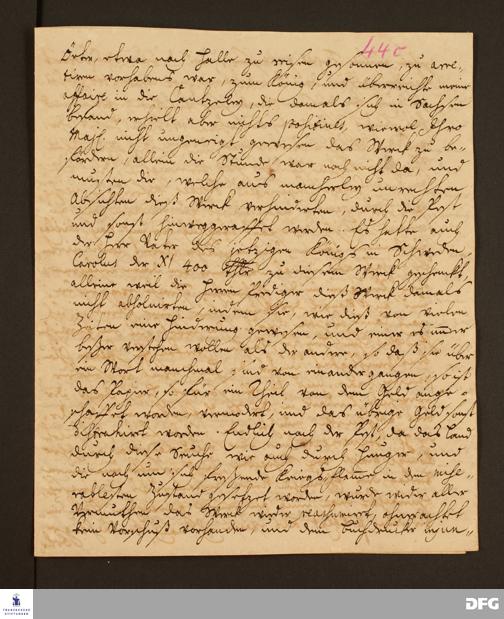 44c
Örter, etwa nach Halle zu reisen gesonnen, zu arre-
tiren vorhabens war, zum König, und überreichte meine
affaire in die Cantzeley, die damals sich in Sachsen
befand, erhielt aber nichts positives, wiewol Ihro
Majt. nicht ungeneigt gewesen das Werck zu be-
fördern, allein die Stunde war noch nicht da, und
musten die, welche aus mancherley unrechten
Absichten dieß Werck verhinderten, durch die Pest
und sonst hinweggeraffet werden. Es hatte auch
der Herr Vater des jetzigen Königs in Schweden
Carolus der XI 400 zu diesem Werck geschenket,
alleine weil die Herren Prediger dieß Werck damals
nicht absolvirten, indem sie, wie dieß von vielen
Zeiten eine Hinderung gewesen, und einer es immer
beßer verstehen wollen als der andere, so daß sie über
ein Wort manchmal von einander gangen, so ist
das Papier, so für ein Theil von dem Geld ange-
schaffet worden, vermodert, und das übrige Geld sonst
worden. Endlich nach der Pest, da das Land
durch diese Seuche wie auch durch Hunger, und
die noch um sich freßende Kriegs flamme in den mise-
rabelsten Zustand gesetzet worden, wurde wieder aller
Vermuthen das Werck wieder, ohnerachtet
kein Vorschuß vorhanden, und dem Buchdrucker
FRANCKESCHE STIFTUNGEN
DFG